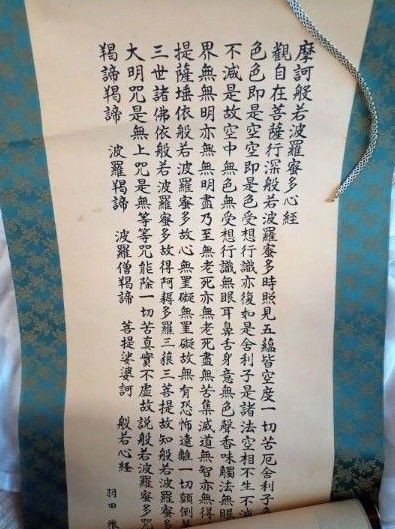 摩訶般若波羅蜜多心經
觀自在菩薩行深般若波羅蜜多時照見五蘊皆空度一切苦厄舍利子
色色即是空空即是色受想行識亦復如是舍利子是諸法空相不生不滅
不減是故空中無色無受想行識無眼耳鼻舌身意無色聲香味觸法無眼
界無無明亦無無明盡乃至無老死亦無老死盡無苦集滅道無智亦無得
提薩埵依般若波羅蜜多故心無罣礙無罣礙故無有恐怖遠離一切顛倒
三世諸佛依般若波羅蜜多故得阿耨多羅三藐三菩提故知般若波羅蜜多
大明咒是無上咒是無等等咒能除一切苦真實不虛故說般若波羅蜜多咒
羯諦羯諦 波羅羯諦 波羅僧羯諦 菩提娑婆訶 般若心經
羽田